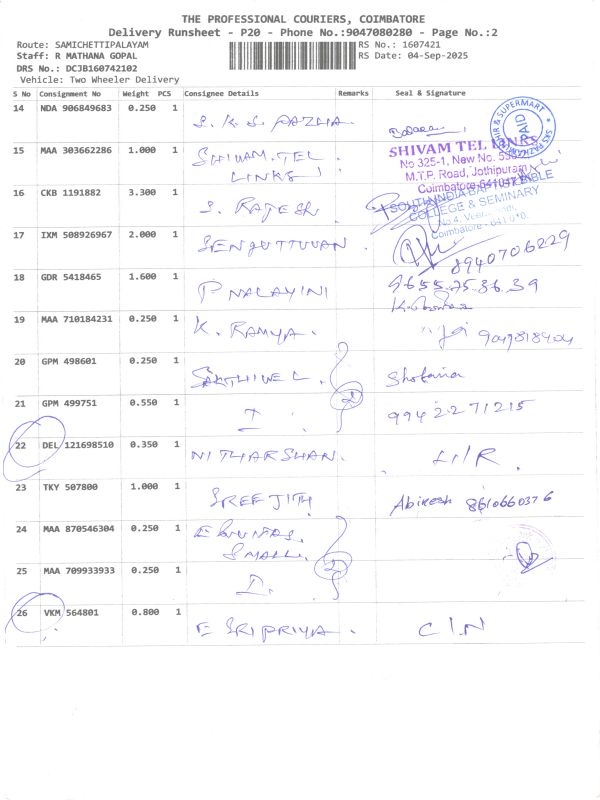 THE PROFESSIONAL COURIERS, COIMBATORE
Delivery Runsheet - P20 - Phone No.:9047080280 - Page No.:2
Route: SAMICHETTIPALAYAM RS No.: 1607421
Staff: R MATHANA GOPAL RS Date: 04-Sep-2025
DRS No.: DCJB160742102
Vehicle: Two Wheeler Delivery
S No Consignment No Weight PCS Consignee Details Remarks Seal & Signature
14 NDA 906849683 0.250 1 S.K.S PAZHA.
SUPERMART PAID
15 MAA 303662286 1.000 1 SHIVAM.TEL
LINKS
SHIVAM TEL LINKS
No 325-1, New No.
M.T.P. Road, Jothipuram
Coimbatore-641047
16 CKB 1191882 3.300 1 S. RAJESH
SOUTH INDIA BAPTIST BIBLE
COLLEGE & SEMINARY
Coimbatore
17 IXM 508926967 2.000 1 SENGUTTUVAN
8940706229
18 GDR 5418465 1.600 1 P NALAYINI 9655753639
19 MAA 710184231 0.250 1 K. RAMYA.
20 GPM 498601 0.250 1 SAKTHIVEL. Shobana
21 GPM 499751 0.550 1 I 2 9942271215
22 DEL 121698510 0.350 1 NITHARSHAN.
23 TKY 507800 1.000 1 SREEJITH Abinesh 8610660376
24 MAA 870546304 0.250 1
SMALL.
25 MAA 709933933 0.250 1 I. 2
26 VKM 564801 0.800 1 E SRIPRIYA. C/N